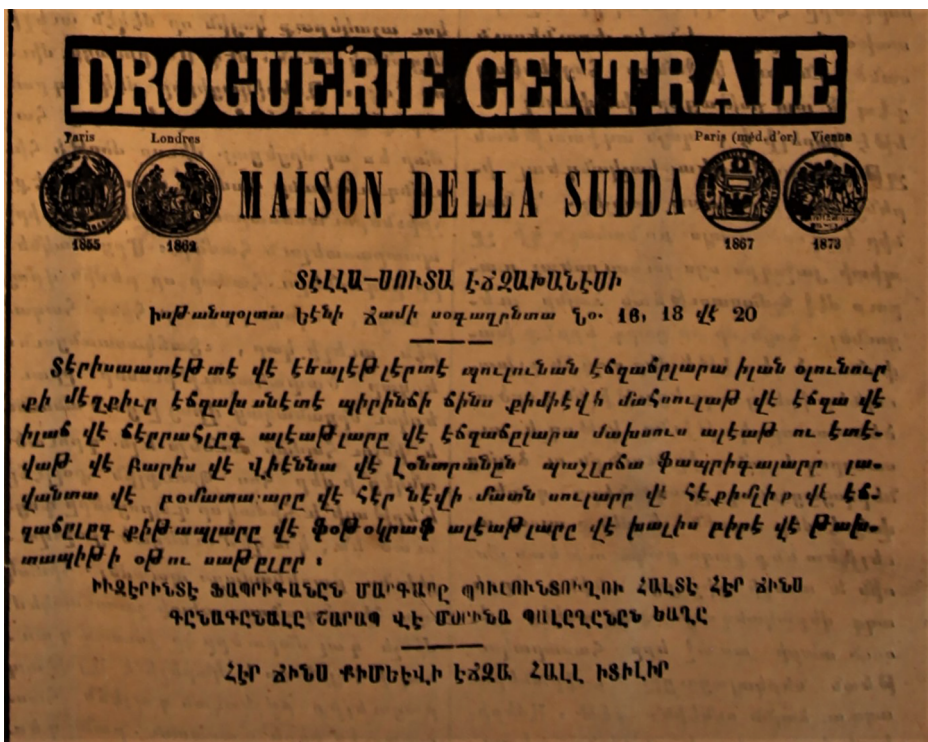 DROGUERIE CENTRALE
Paris Londres Paris (méd. d'or) Vienne
MAISON DELLA SUDDA
1855 1862 1867 1873
ՏԷԼԼԱ-ՍՈՒՏԱ ԷՃԶԱԽԱՆԷՍԻ
Իսթանպօլտա Եէնի Ճամի սօգաղընտա Նօ. 16, 18 վէ 20
Տէրիսաատէթտէ վէ էեալէթլէրտէ պուլունան էճզաճըլարա իլան օլունուր
քի մէզքիւր էճզախանէտէ պիրինճի ճինս քիմիէվի մահսուլաթ վէ էճզա վէ
իլաճ վէ ճէրրահլըգ ալէաթլարը վէ էճզաճըլարա մախսուս ալէաթ ու էտէ-
վաթ վէ Բարիս վէ Վիէննա վէ Լօնտրանըն պաշլըճա ֆապրիգալարը լա-
վանտա վէ րօմատալարը վէ հէր նէվի մատն սուլարը վէ հէքիմլիք վէ էճ-
զաճըլըգ քիթապլարը վէ ֆօթօկրաֆ ալէաթլարը վէ խալիս բիրէ վէ թախ-
տապիթի օթու սաթըլըր ։
ԻԻԶԷՐԻՆՏԷ ՖԱՊՐԻԳԱՆԸՆ ՄԱՐԳԱՐԸ ՊՈՒԼՈՒՆՏՈՒՂՈՒ ՀԱԼՏԷ ՀԷՐ ՃԻՆՍ
ԳԸՆԱԳԸՆԱԼԸ ՇԱՐԱՊ ՎԷ ՄՕՐԻՆԱ ՊԱԼԸՂԸՆԸՆ ԵԱՂԸ
ՀԷՐ ՃԻՆՍ ՔԻՄԵԷՎԻ ԷՃԶԱ ՀԱԼԼ ԻՏԻԼԻՐ